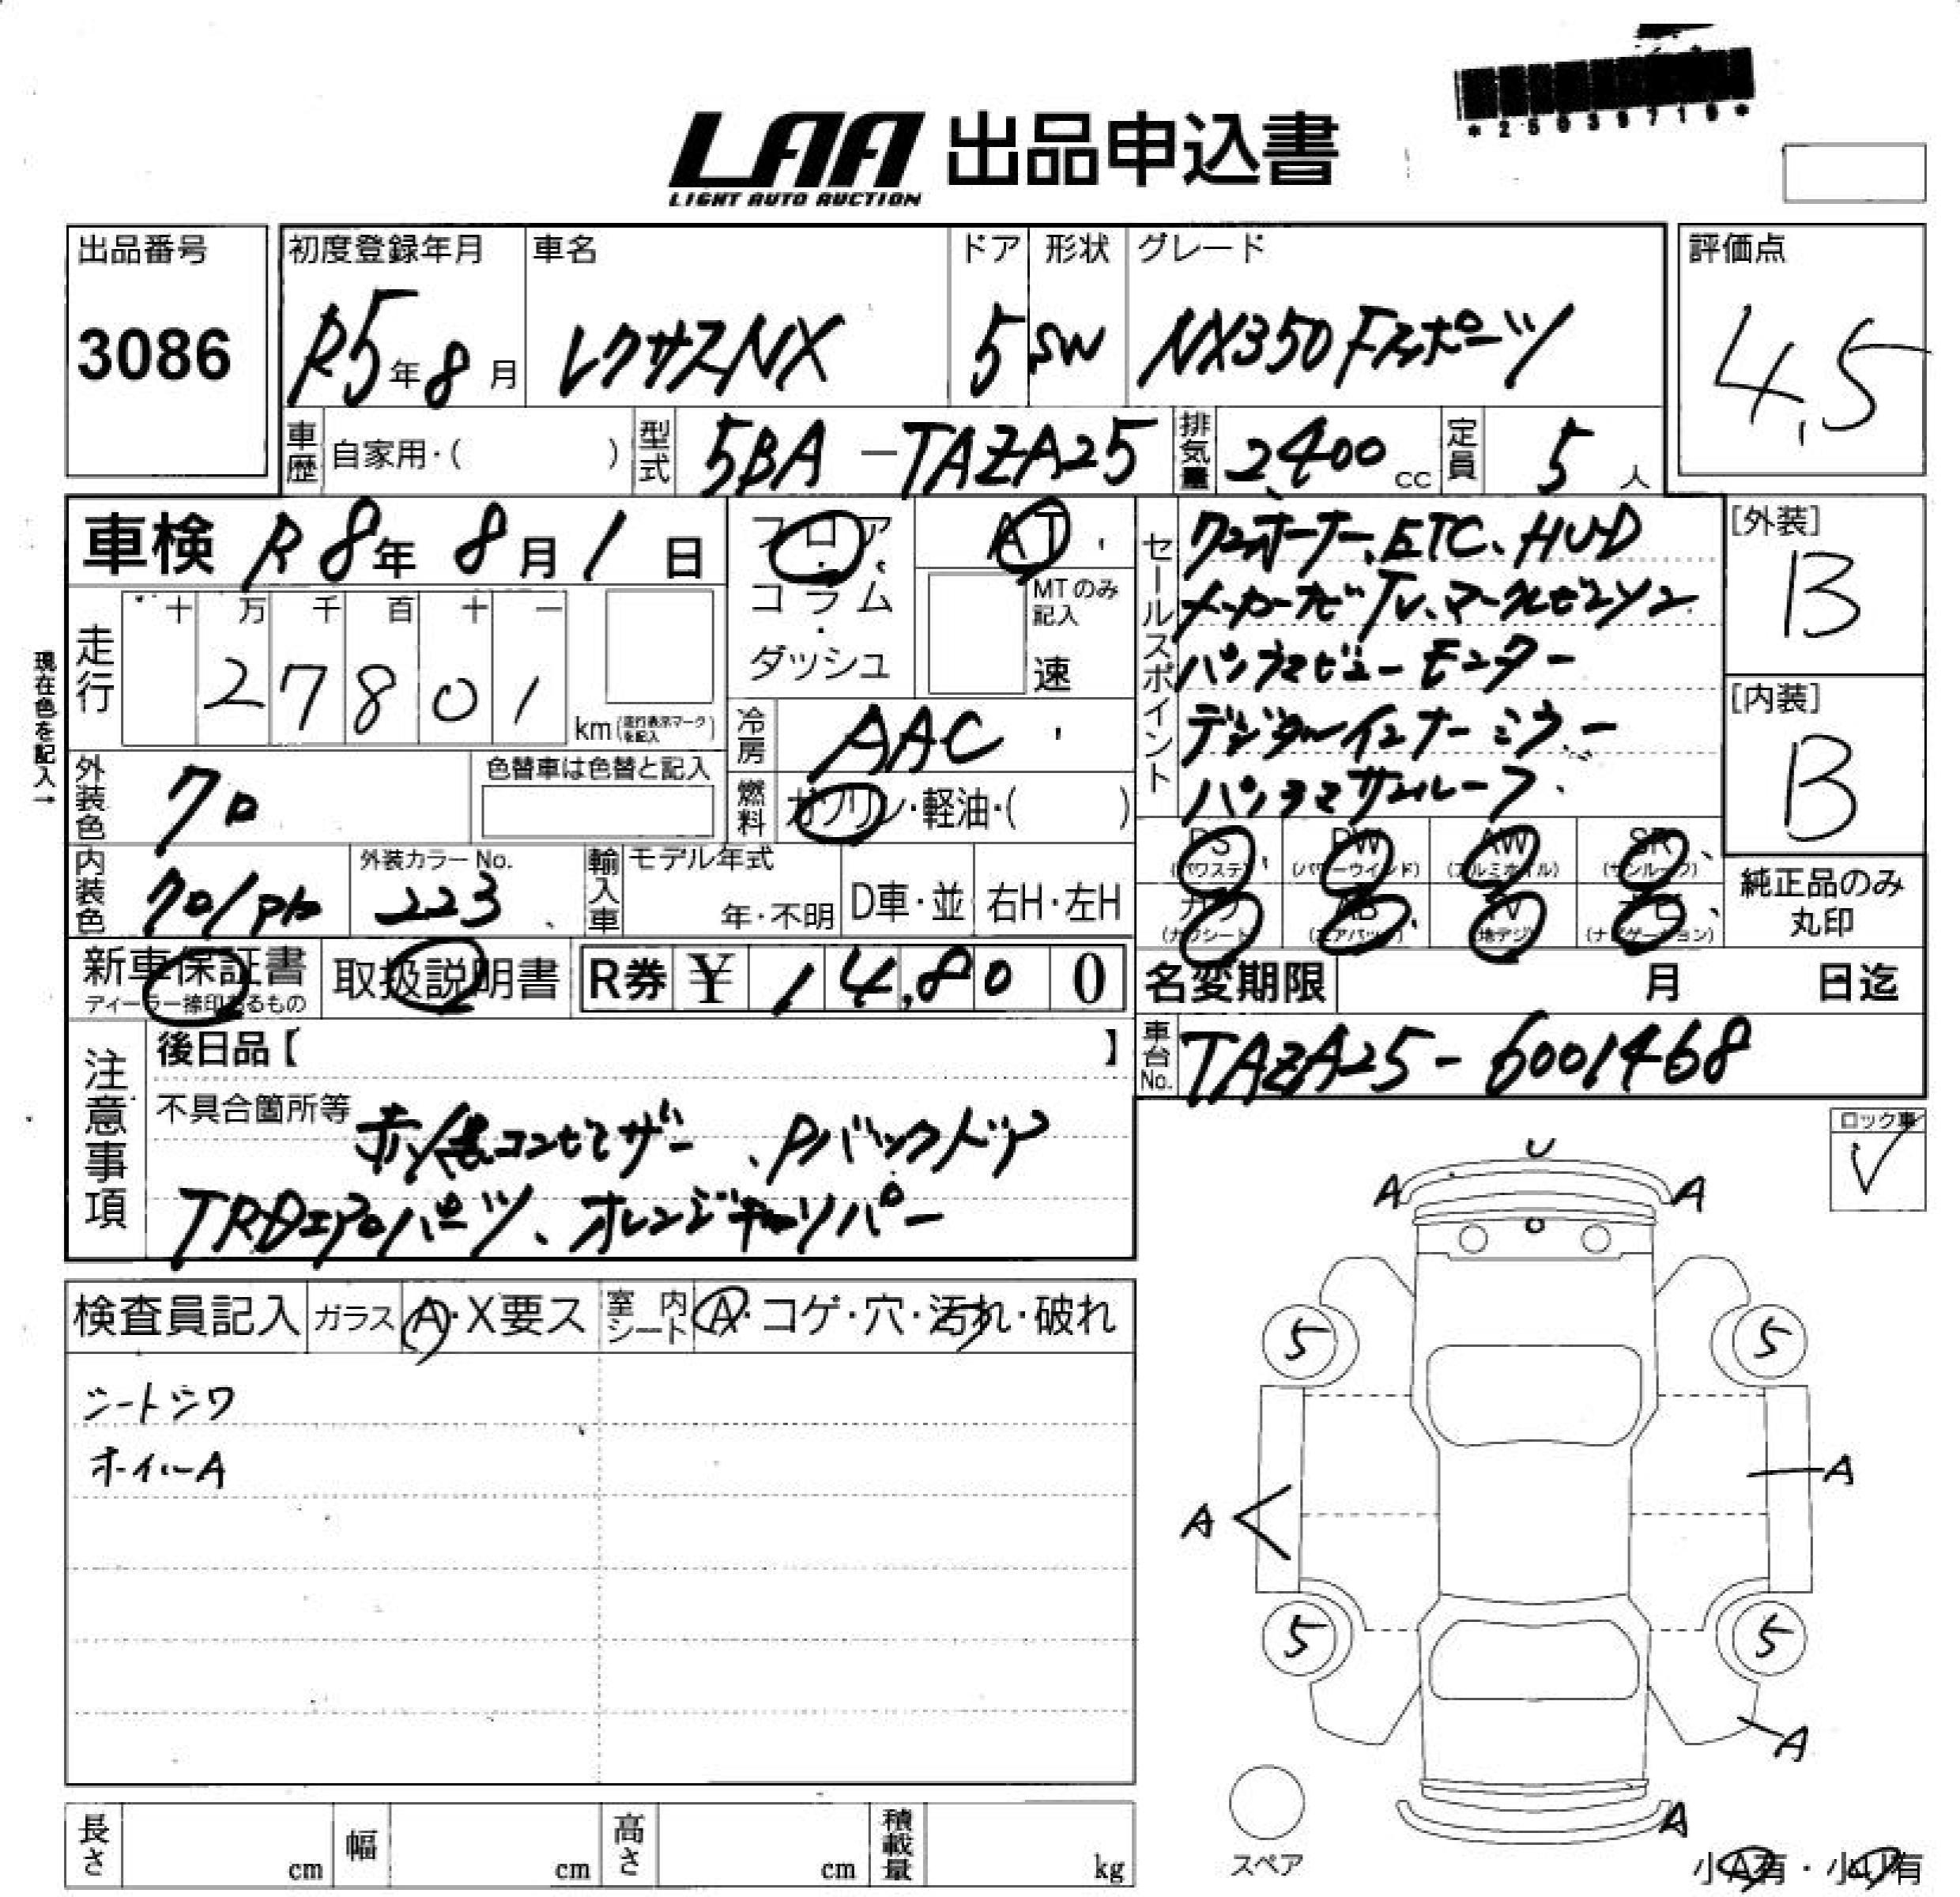 *25039719*
LAA 出品申込書
LIGHT AUTO AUCTION
出品番号 3086
初度登録年月 R5年8月
車名 レクサスNX
ドア 5
形状 SW
グレード NX350 Fスポーツ
評価点 4.5
車歴 自家用・( )
型式 5BA-TAZA25
排気量 2,400 cc
定員 5 人
車検 R8年8月1日
フロア・コラム・ダッシュ
AT
MTのみ記入 速
セールスポイント
ワンオーナー、ETC、HUD
メーカーナビTV、マークレビンソン
パノラマビューモニター
デジタルインナーミラー
パノラマサンルーフ
[外装] B
[内装] B
現在色を記入→
走行 十 万 千 百 十 一
27801 km (走行表示マークを記入)
冷房 AAC
外装色 クロ
色替車は色替と記入
燃料 ガソリン・軽油・( )
内装色 クロ/
外装カラーNo. 223
輸入車 モデル年式 年・不明
D車・並 右H・左H
PS (パワステ) PW (パワーウインド) AW (アルミホイル) SR (サンルーフ)
カワ (カワシート) AB (エアバック) TV (地デジ) ナビ (ナビゲーション)
純正品のみ丸印
新車保証書 ディーラー捺印あるもの
取扱説明書
R券 ¥ 14,800
名変期限 月 日迄
車台No. TAZA25-6001468
注意事項
後日品【 】
不具合箇所等 赤/黒コンビレザー、Pバックドア
TRDエアロパーツ、オレンジキャリパー
ロック車
検査員記入 ガラス A・X要ス 室内シート A・コゲ・穴・汚れ・破れ
シートシワ
ホイールA
U
A A
5 5
A
A
5 5
A
A
スペア
小A有・小U有
長さ cm 幅 cm 高さ cm 積載量 kg